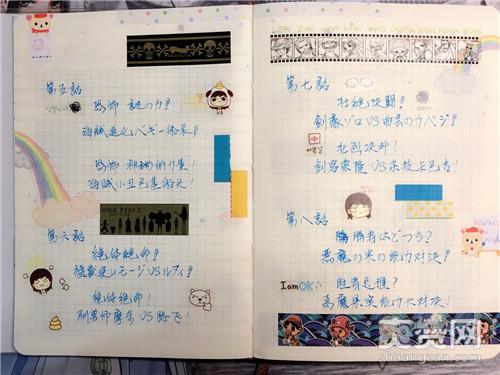 第五話
恐怖 謎の力!
海賊道化バギー船長!
恐怖 神秘的力量!
海賊小丑巴基船长!
ONE PIECE
第六話
絶体絶命!
猛獣使いモージVSルフィ!
絶体絶命!
驯兽师摩奇VS路飞!
第七話
壮絶決闘!
剣豪ゾロVS曲芸のカバジ!
壮烈决斗!
剑客索隆VS杂技卡巴吉!
第八話
勝者はどっち?
悪魔の実の能力対決!
I am OK
胜者是谁?
恶魔果实能力大对决!
爽赞网